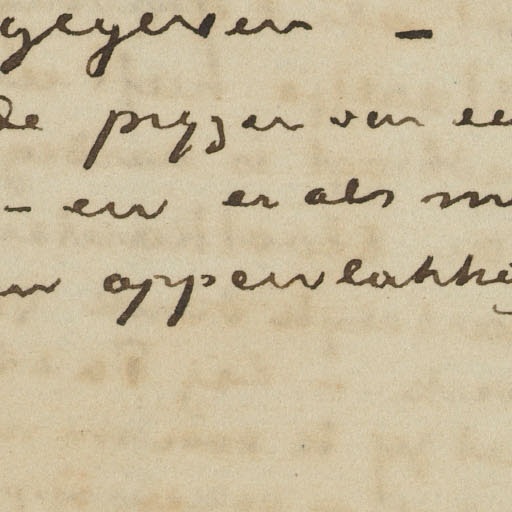 gegeven –
de pryzen van ee
– en er als m
en oppervlakki